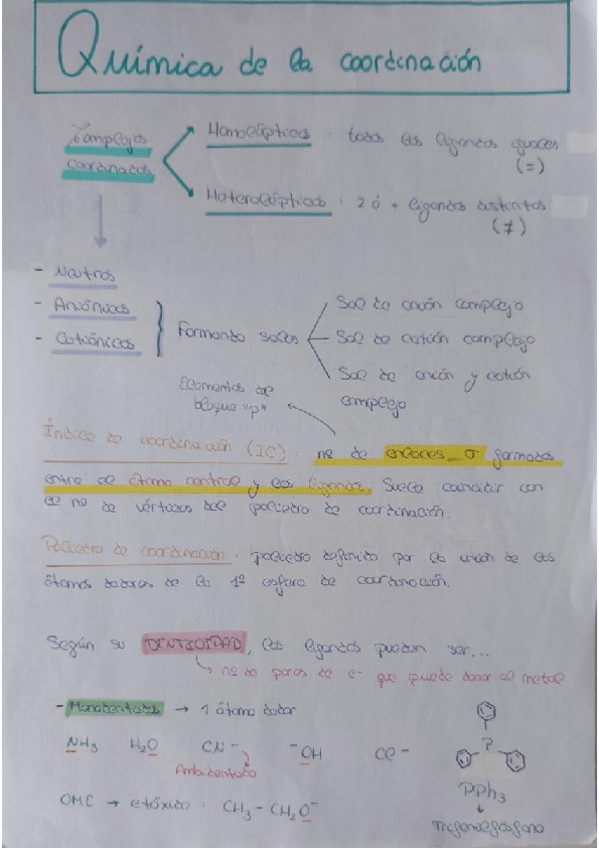 Química de la coordinación
Complejos coordinados
Homolépticos : todos los ligandos iguales (=)
Heterolépticos : 2 ó + ligandos distintos (≠)
- Neutros
- Aniónicos
- Catiónicos
Formando sales
Sal de anión complejo
Sal de catión complejo
Sal de anión y catión complejo
Elementos del bloque "p"
Índice de coordinación (IC) : nº de enlaces σ formados
entre el átomo central y los ligandos. Suele coincidir con
el nº de vértices del poliedro de coordinación.
Poliedro de coordinación : poliedro definido por la unión de los
átomos dadores de la 1ª esfera de coordinación.
Según su DENTICIDAD, los ligandos pueden ser...
nº de pares de e- que puede donar al metal
- Monodentados → 1 átomo dador
NH3 H2O CN- -OH Cl-
Ambidentado
P
PPh3
OME → etóxido : CH3-CH2O-